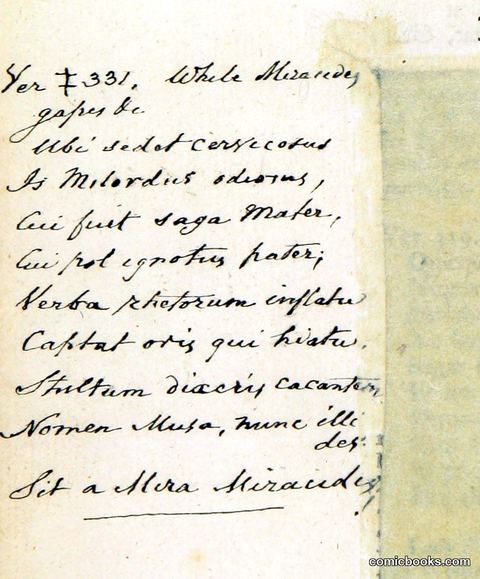 Ver ‡ 331. While Mirandes
gapes &c
Ubi sedet cervicosus
Is Milordus odiosus,
Cui fuit saga Mater,
Cui pol ignotus pater;
Verba rhetorum inflatu
Captat oris qui hiatu.
Stultum dixeris cacantem
Nomen Musa, nunc illi
des:
Sit a Mira Mirandes!
comicbooks.com